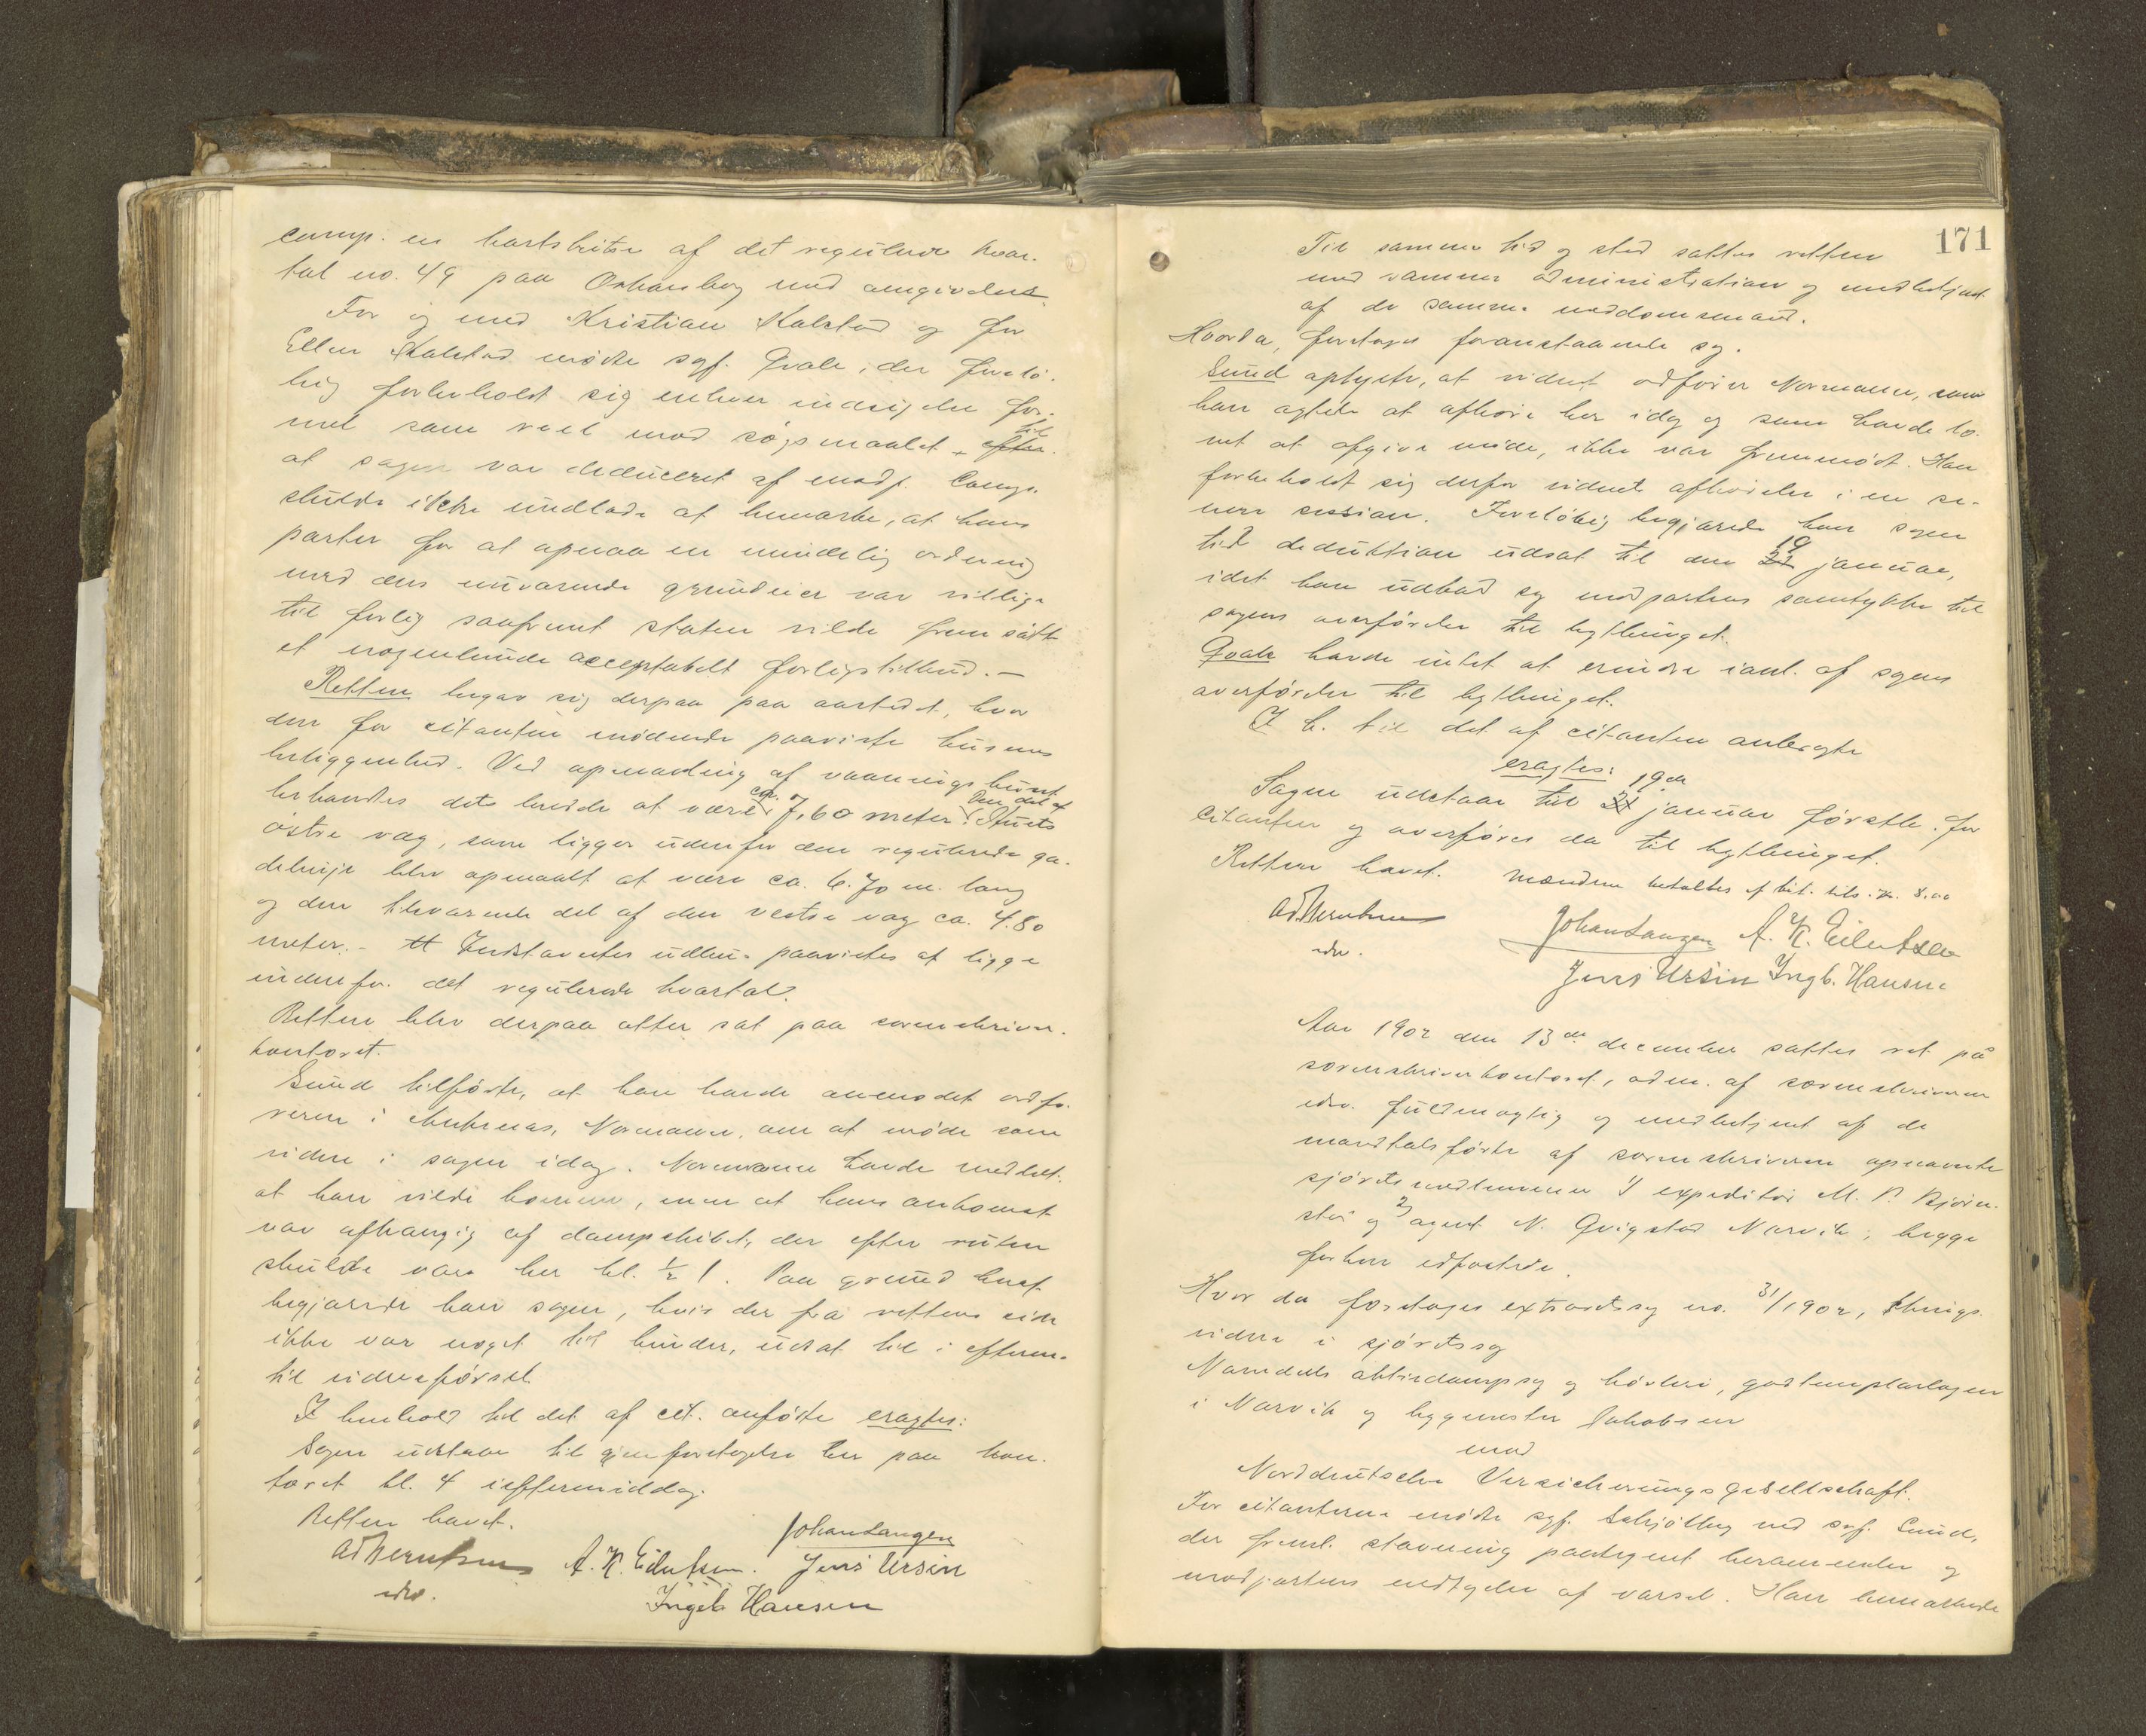 comp. en kartskitse af det regulerte kvar-
tal no. 49 paa Oskarsborg med omgivelser.
For og med Kristian Kalstad og for
Ellen Kalstad mødte sgf. Qvale, der forelø-
big forbeholdt sig enhver indsigelse for-
mel som reel mod søgsmaalet til efter
at sagen var deduceret af modp. Comp.
skulde ikke undlade at bemærke, at hans
parter for at opnaa en mindelig ordning
med den nuværende grundeier var villige
til forlig saafremt staten vilde fremsætte
et nogenlunde acceptabelt forligstilbud. –
Retten begav sig derpaa paa aastedet, hvor
den for citanten mødende paaviste husenes
beliggenhed. Ved opmaaling af vaaningshuset
befandtes dets bredde at være ca. 7,60 meter. Den del af husets
østre væg, som ligger udenfor den regulerede ga-
delinje blev opmaalt at være ca. 6.70 m. lang
og den tilsvarende del af den vestre væg ca. 4.80
meter. – Et Indstavntes udhus paavistes at ligge
indenfor det regulerede kvartal.
Retten blev derpaa atter sat paa sorenskriver-
kontoret.
Sund tilførte, at han havde anmodet ordfø-
reren i Ankenes, Normann, om at møde som
vidne i sagen idag. Normann havde meddelt,
at han vilde komme, men at hans ankomst
var afhængig af dampskibet, der efter ruten
skulde være her kl. ½ 1. Paa grund heraf
begjærede han sagen, hvis der fra rettens side
ikke var noget til hinder, udsat til i efterm.
til vidneførsel.
I henhold til det af cit. anførte eragtes:
Sagen udstaar til gjenforetagelse her paa kon-
toret kl. 4 i eftermiddag.
Retten hævet.
Ad Berntsen A. K. Eilertsen. Johan Langen
Jens Ursin
edsv. Ingeb. Hansen
171
Til samme tid og sted sattes retten
med samme administration og medbetjent
af de samme meddomsmænd.
Hvorda, foretoges foranstaaende sag.
Sund oplyste, at vidnet ordfører Normann, som
han agtede at afhøre her idag og som havde lo-
vet at afgive møde, ikke var fremmødt. Han
forbeholdt sig derfor vidnets afhørelse i en se-
nere session. Foreløbig begjærede han sagen
til deduktion udsat til den 21 19 januar,
idet han udbad sig modpartens samtykke til
sagens overførelse til bythinget.
Qvale havde intet at erindre i anl. af sagens
overførelse til bythinget.
I h. til det af citanten anbragte
eragtes:
Sagen udstaar til 21 19de januar førstk. for
citanten og overføres da til bythinget.
Retten hævet. Mændene betaltes af cit. tils. kr. 8.00
Ad Berntsen Johan Langen A. K. Eilertsen
edsv. Jens Ursin Ingb. Hansen
Aar 1902 den 13de december sattes ret på
sorenskriverkontoret, adm. af sorenskriverens
edsv. fuldmægtig og medbetjent af de
mandtalsførte af sorenskriveren opnævnte
sjøretsmedlemmer 1) expeditør M. P. Bjørn-
stø og 2) agent N. Qvigstad Narvik, begge
forhen edfæstede.
Hvor da foretoges extraretssag no. 31/1902, things-
vidne i sjøretssag
Namdals aktiedampsag og høvleri, godtemplarlogen
i Narvik og bygmester Jakobsen
mod
Norddeutsche Versicherungsgesellschaft.
For citanterne mødte sgf. Schjølberg ved sgf. Sund,
der freml. stævning paategnet berammelse og
modpartens vedtagelse af varsel. Han bemærkede